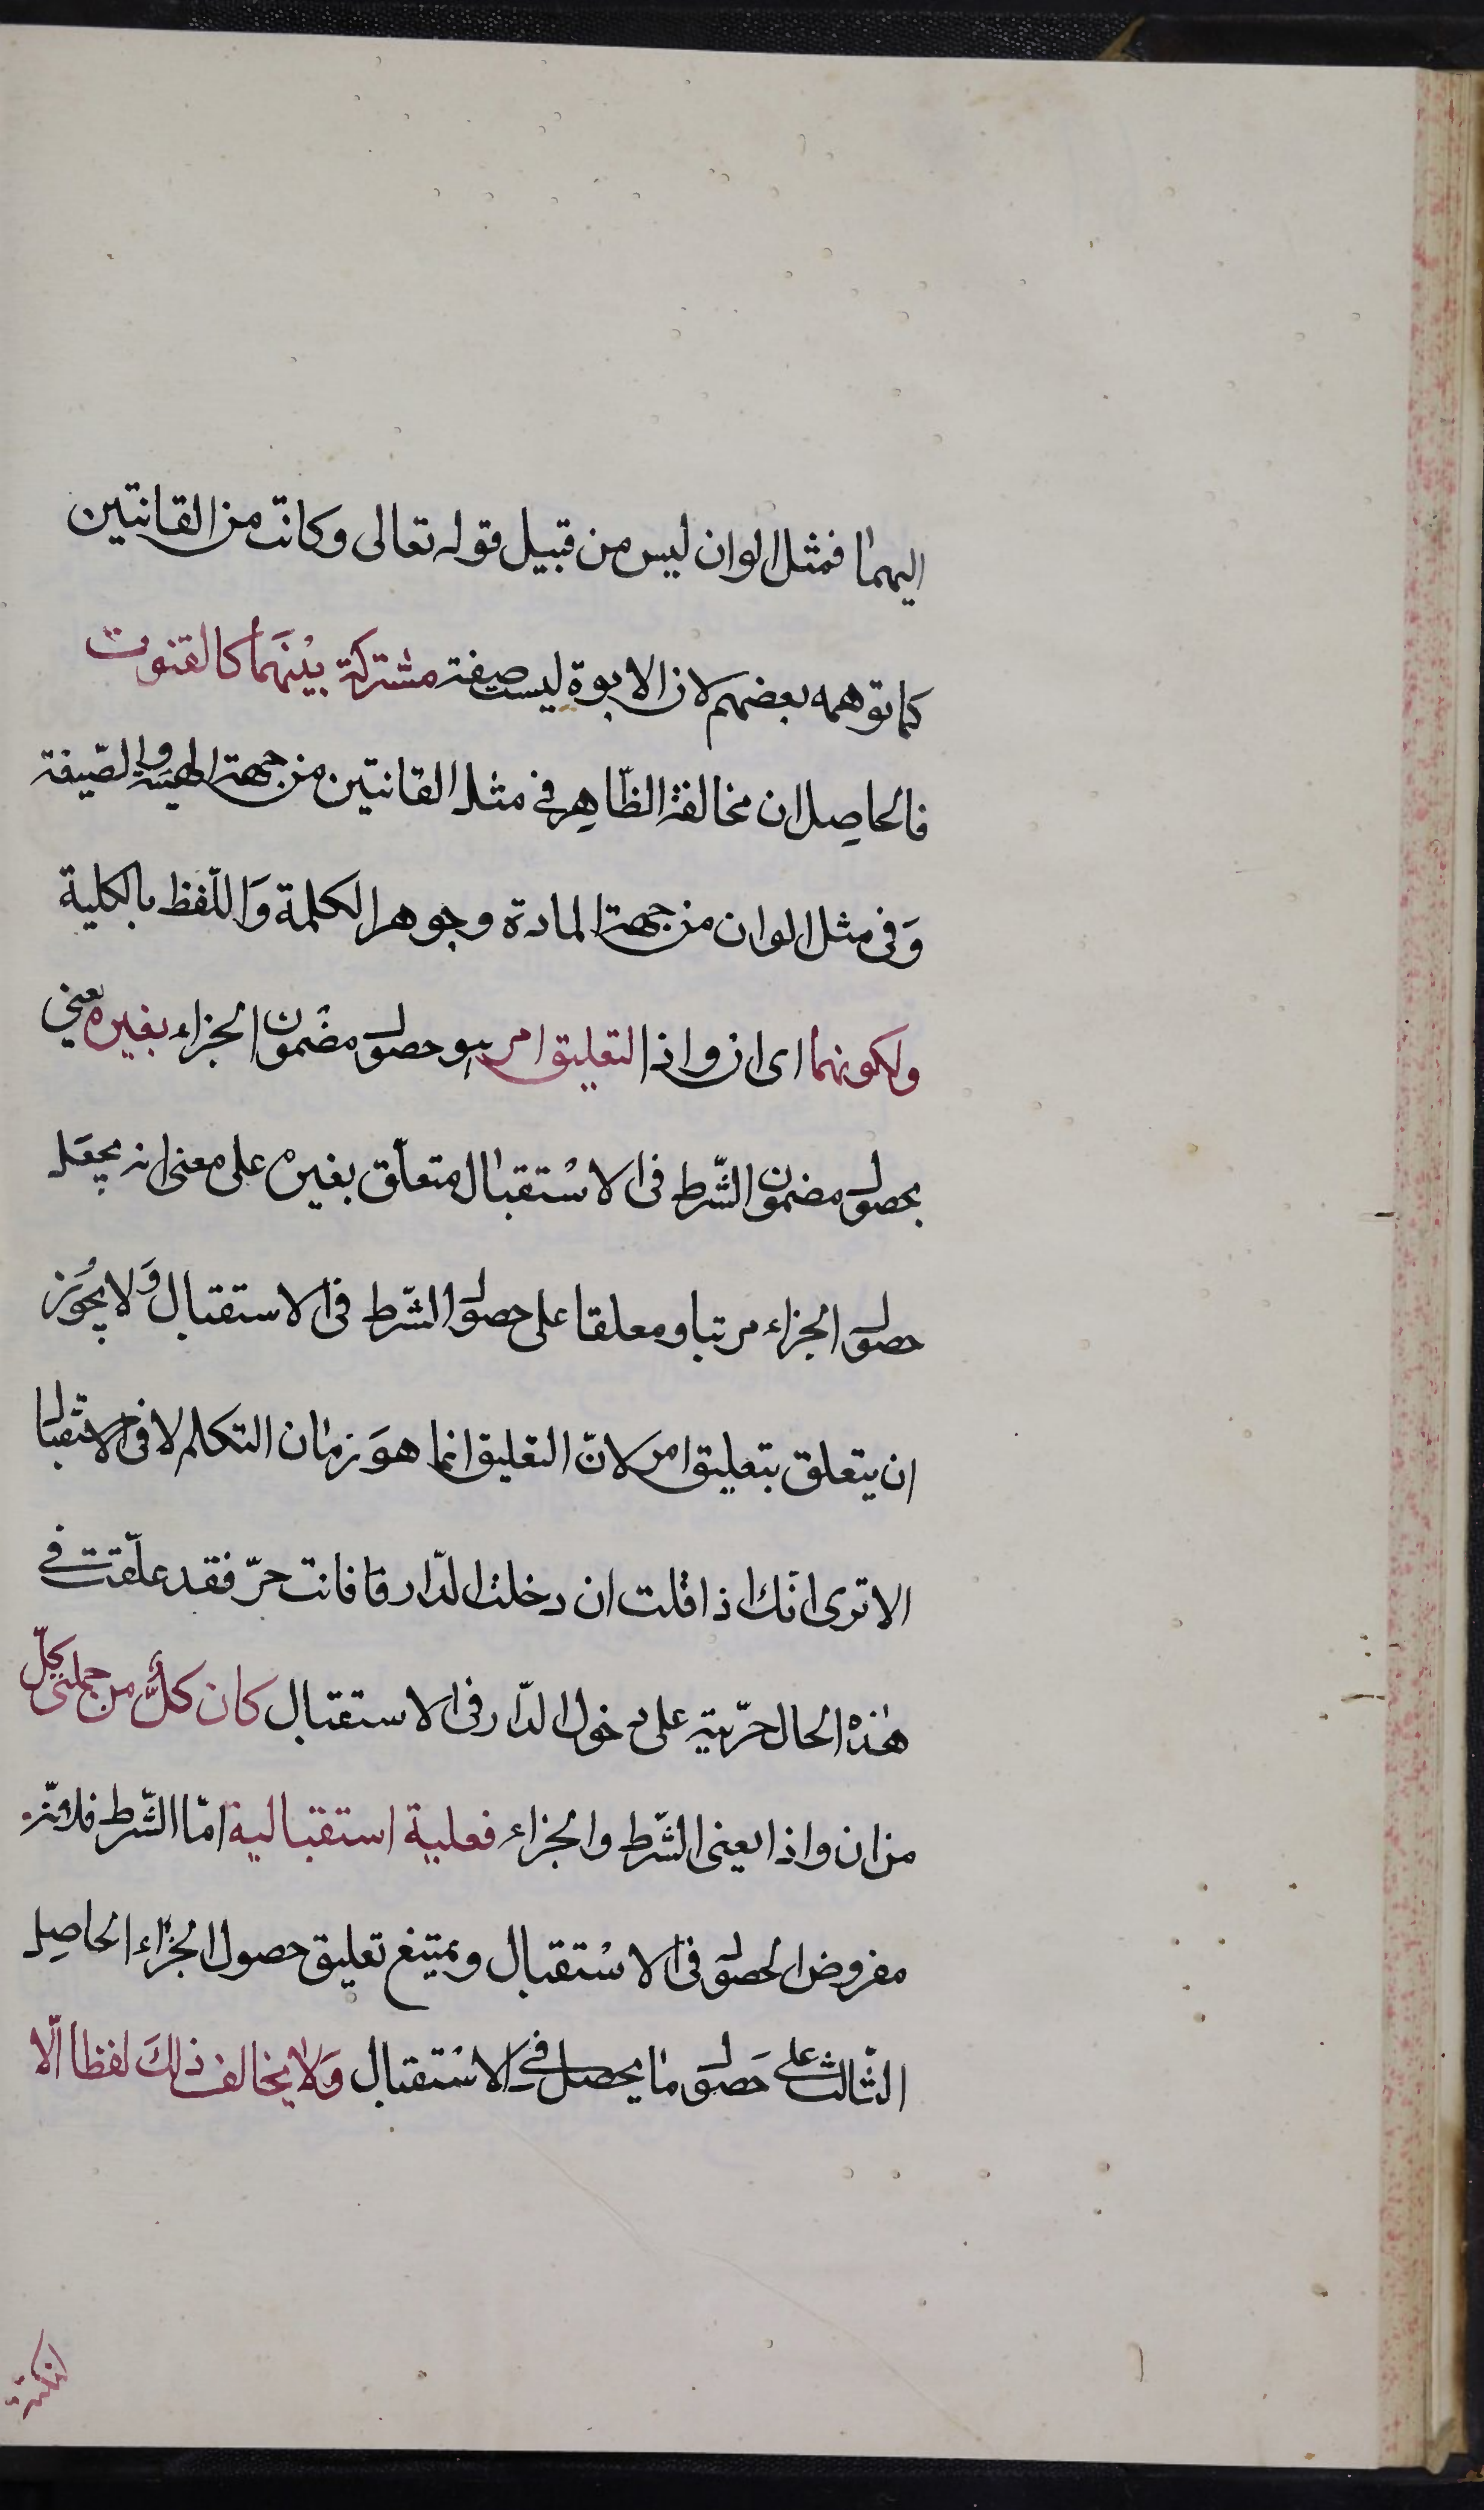 اليهما فمثل ابوان ليس من قبيل قوله تعالى وكانت من القانتين
كما توهمه بعضهم لان الابوة ليست صفة مشتركة بينهما كالقنوت
فالحاصل ان مخالفة الظاهر في مثل القانتين من جهة الهيئة والصيغة
وفي مثل ابوان من جهة المادة وجوهر الكلمة واللفظ بالكلية
ولكونهما اى ان واذا لتعليق امر هو حصول مضمون الجزاء بغيره يعنى
بحصول مضمون الشرط فى الاستقبال متعلق بغيره على معنى انه يجعل
حصول الجزاء مرتبا ومعلقا على حصول الشرط فى الاستقبال ولا يجوز
ان يتعلق بتعليق امر لان التعليق انما هو زمان التكلم لا فى الاستقبال
الا ترى انك اذا قلت ان دخلت الدار فانت حر فقد علقت في
هذه الحال حريته على دخول الدار فى الاستقبال كان كل من جملتى كل
من ان واذا يعنى الشرط والجزاء فعلية استقبالية اما الشرط فلانه
مفروض الحصول فى الاستقبال ويمتنع تعليق حصول الجزاء الحاصل
الثالث على حصول ما يحصل في الاستقبال ولا يخالف ذلك لفظا الا
لنكتة